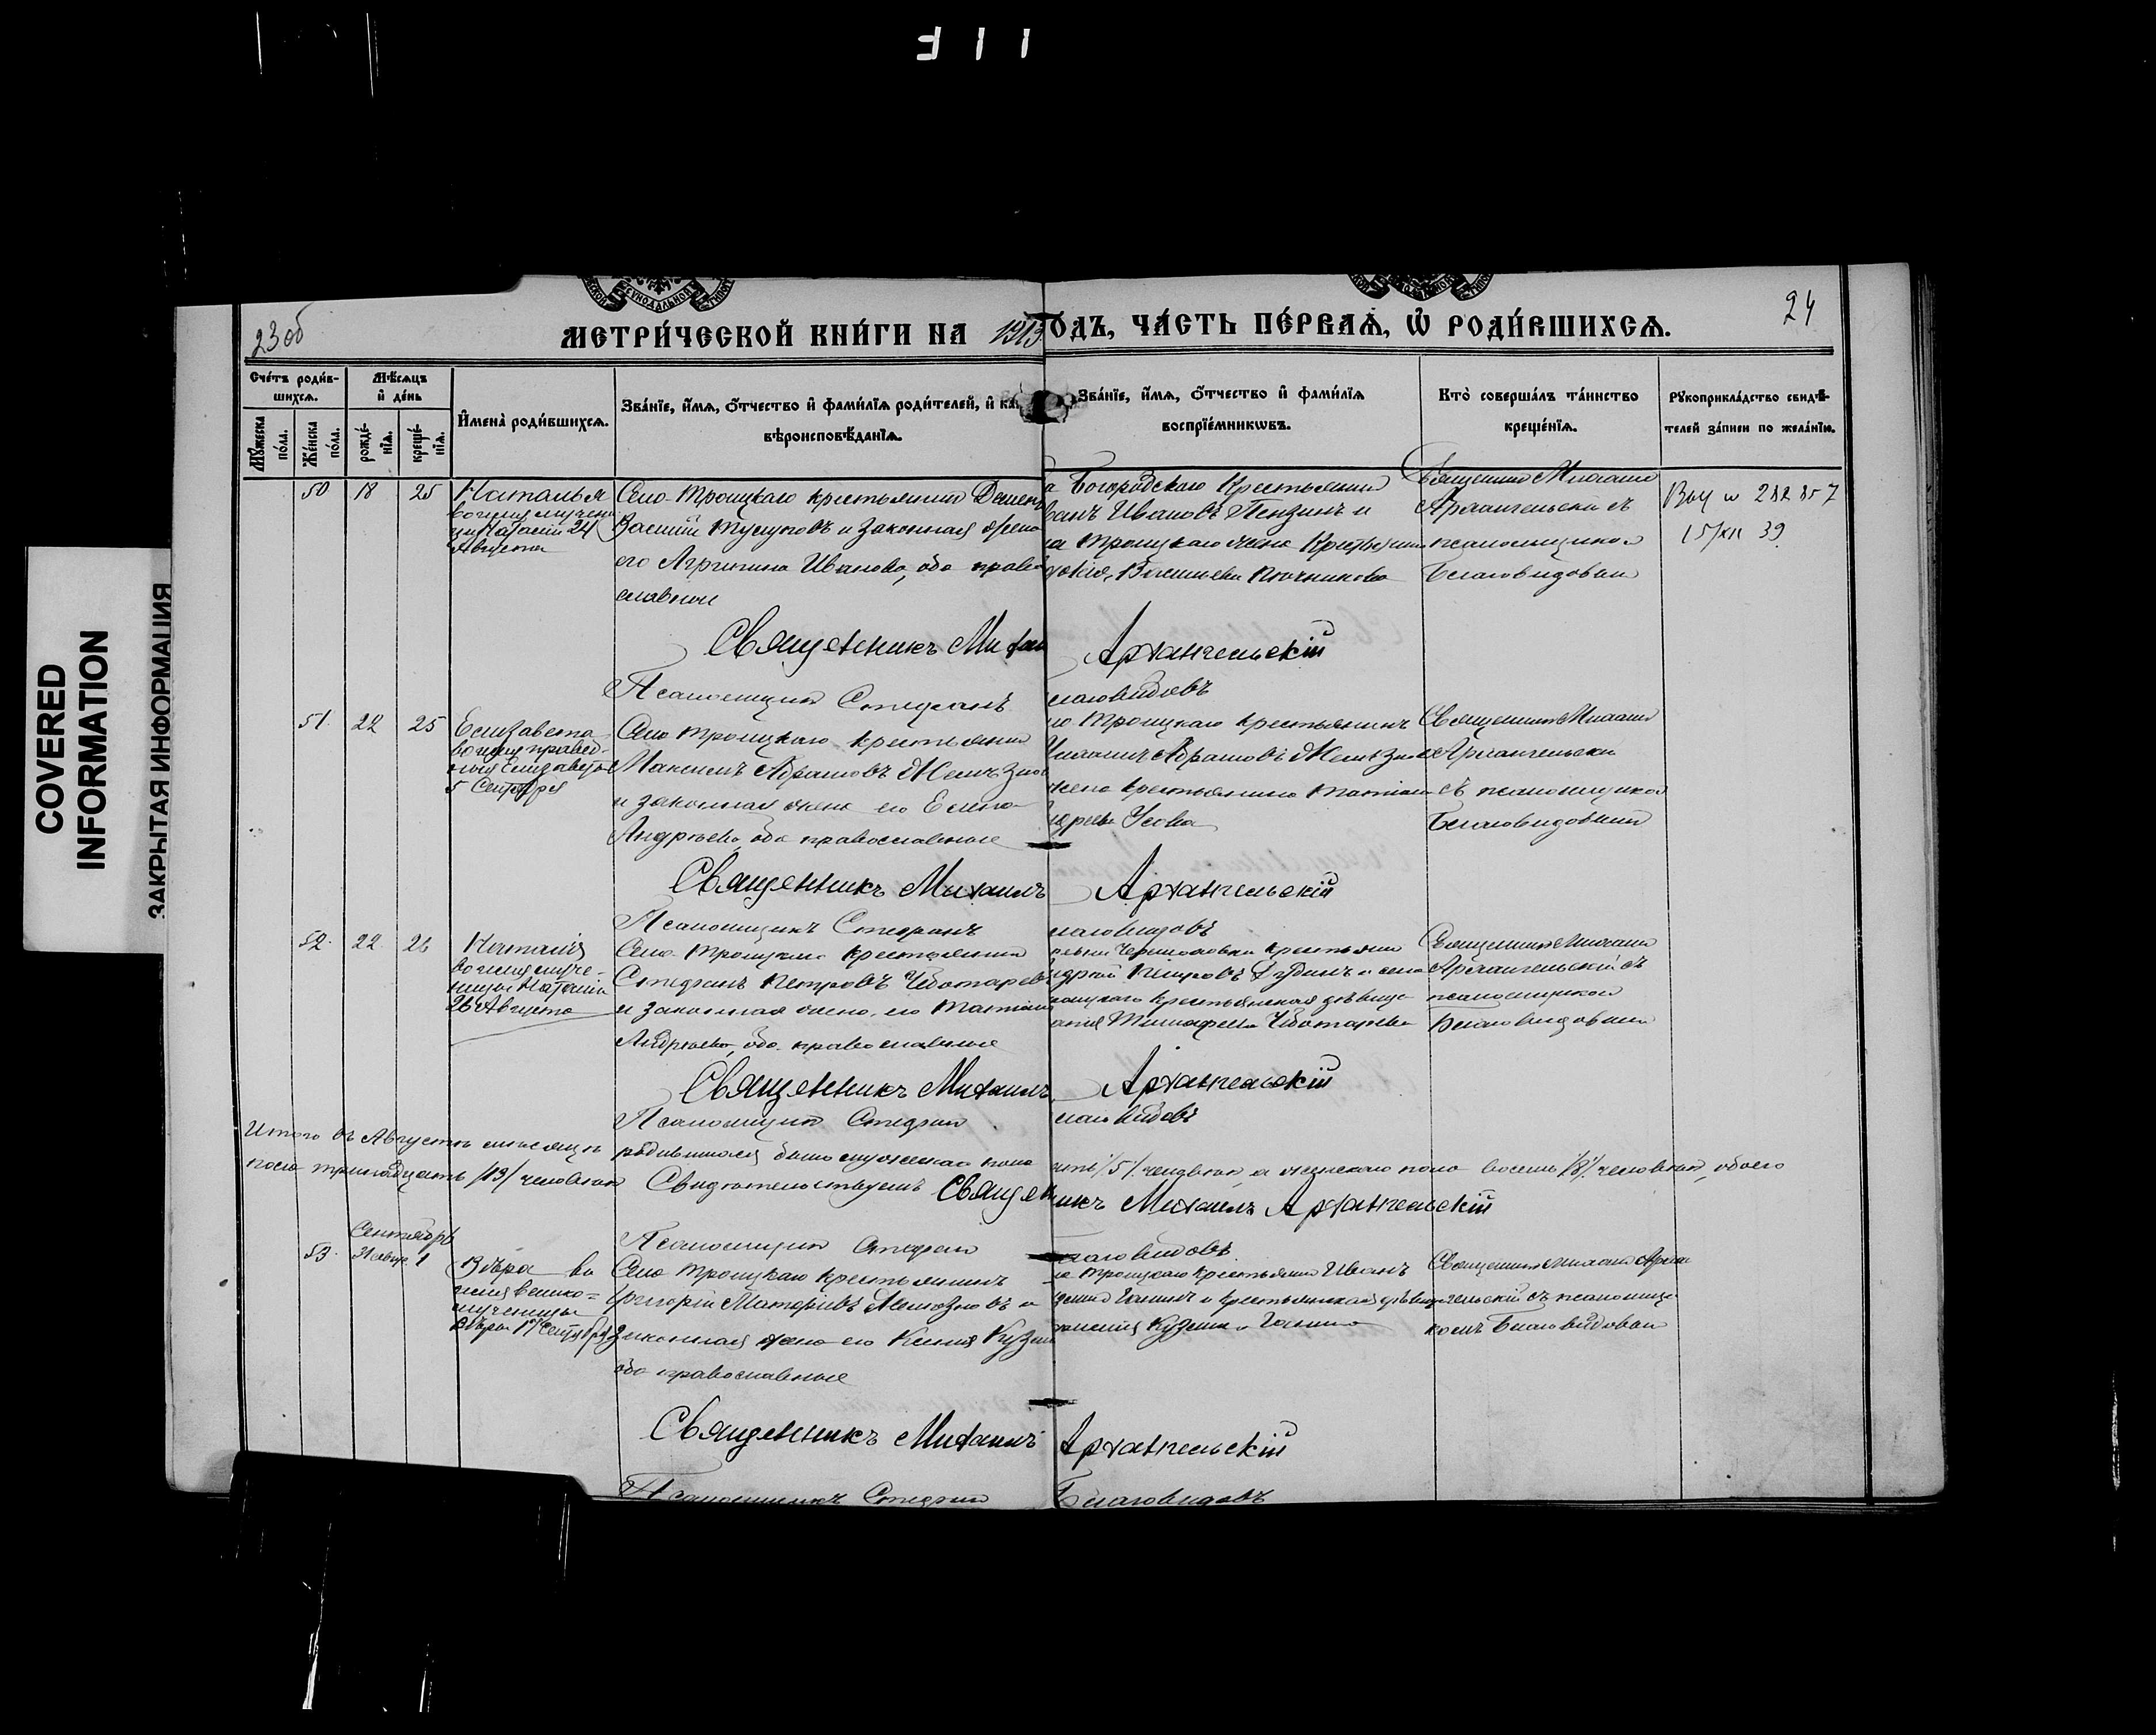 311
COVERED
INFORMATION
ЗАКРЫТАЯ ИНФОРМАЦИЯ
23об
24
МЕТРИ́ЧЕСКОЙ КНИ́ГИ НА 1913 ОДЪ, ЧА́СТЬ ПЕ́РВАЯ, Ѿ РОДИ́ВШИХСЯ.
Сче́тъ роди́в-
шихся.
Мѣ́сяцъ
и҆ де́нь
Мꙋ́жеска по́ла.
Же́нска по́ла.
рожде́-нїѧ.
креще́-нїѧ.
И҆мена̀ роди́вшихсѧ.
Зва́нїе, и҆́мѧ, ѻ҆́тчество и҆ фами́лїѧ роди́телей, и҆ ка
вѣроисповѣ́данїѧ.
Зва́нїе, и҆́мѧ, ѻ҆́тчество и҆ фами́лїѧ
воспрїе́мникѡвъ.
Кто̀ соверша́лъ та́инство
креще́нїѧ.
Рꙋкоприкла́дство свидѣ́-
телей за́писи по жела́нїю.
50 18 25
Наталья
во имя мучени
цы Наталіи 24
Августа
Село Троицкаго крестьянинъ
Василій и законная жена
его Агрипина Иванова, оба право
славные
а Богородскаго Крестьянинъ
ванъ Ивановъ Пензинъ и
ла Троицкаго жена Крестьянина
Васильева Ключникова
Священникъ Михаилъ
Архангельскій съ
псаломщикомъ
Благовидовым
282857
15/XII 39
Священникъ Михаи Архангельскій
Псаломщикъ Стефанъ лаговидовъ
51. 22 25
Елизавета
во имя правед-
ныя Елизаветы
5 Сентября
Село Троицкаго крестьянинъ
Максимъ Абрамовъ
и законная жена его Елена
Андреева, оба православные
ло Троицкаго крестьянинъ
Абрамовъ
жена крестьянина
ндреева Усова
Священникъ Михаилъ
Архангельскій
съ псаломщиком
Благовидовым
Священникъ Михаилъ Архангельскій
Псаломщикъ Стефанъ лаговидовъ
52. 22. 26
Наталія
во имя муче-
ницы Наталіи
26 Августа
Село Троицкаго крестьянинъ
Стефанъ Петровъ Чеботарев
и законная жена его Татіана
Андреева, оба православные
крестьянин
ндрей Петровъ Дудинъ и села
роицкаго крестьянская дѣвица
Тимофеева Чеботарева
Священникъ Михаилъ
Архангельскій съ
псаломщиком
Благовидовым
Священникъ Михаилъ Архангельскій
Псаломщикъ Стефанъ лаговидовъ
Итого въ Августѣ мѣсяцѣ родившихся было мужеска пола ять /5/ человѣкъ, а женскаго пола восемь /8/ человѣкъ, обоего
пола тринадцать /13/ человѣкъ Свидѣтельствуемъ Священ икъ Михаилъ Архангельскій
Псаломщикъ Стефанъ лаговидовъ
Сентябрь
53. 1
Вѣра во
имя велико-
мученицы
Вѣры 17 Сентября
Село Троицкаго крестьянинъ
Григорій
законная жена его Ксенія Кузьм
оба православные
ла Троицкаго крестьянинъ Иванъ
Ганинъ и крестьянская дѣвица
Кузьмина Ганина
Священникъ Михаилъ Архан
гельскій съ псаломщи
комъ Благовидовым
Священникъ Михаилъ Архангельскій
Псаломщикъ Стефанъ Благовидовъ